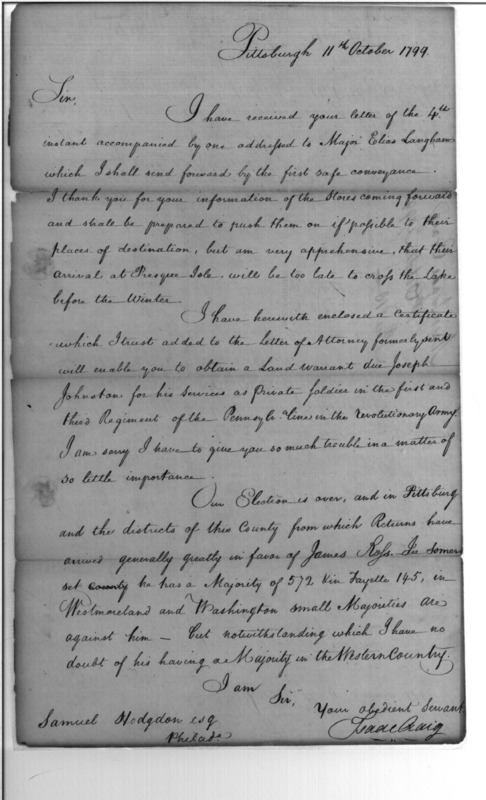 Pittsburgh 11th October 1799.
Sir,
I have received your letter of the 4th
instant accompanied by one addressed to Major Elias Langham
which I shall send forward by the first safe conveyance.
I thank you for your information of the Stores coming forward
and shall be prepared to push them on if possible to their
places of destination, but am very apprehensive, that their
arrival at Presque Isle will be too late to cross the Lake
before the Winter.
I have herewith enclosed a Certificate
which I trust added to the Letter of Attorney formerly sent
will enable you to obtain a Land Warrant due Joseph
Johnston for his services as Private Soldier in the first and
third Regiment of the Pennsylv. Line in the revolutionary Army
I am sorry I have to give you so much trouble in a matter of
so little importance.
Our Election is over, and in Pittsburg
and the districts of this County from which Returns have
arrived generally greatly in favor of James Ross. In Somer
set County he has a Majority of 572 & in Fayette 145, in
Westmoreland and Washington small Majorities are
against him — but notwithstanding which I have no
doubt of his having a Majority in the Western Country.
I am
Sir,
Your obedient Servant
Isaac Craig
Samuel Hodgdon esq
Philada